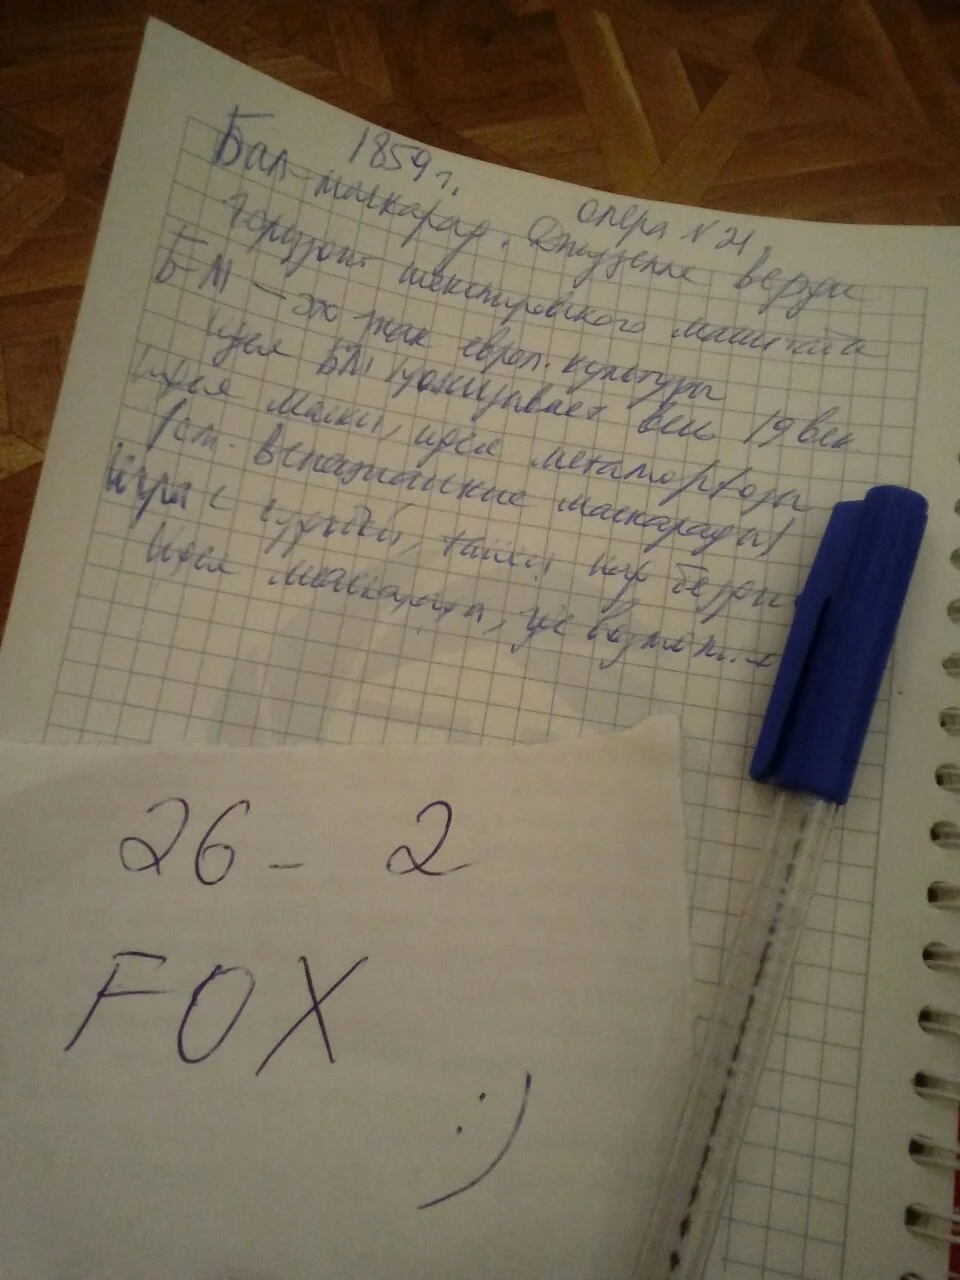 1859 г.
опера № 21
Бал-маскарад. Джузеппе Верди
Горизонт шекспировского масштаба
Б-М – знак европ. культуры
Идея БМ весь 19 век
Идея маски, идея метаморфозы
(ст. Венецианские маскарады)
Игра с судьбой, танец над бездн
Идея маскарада, где возможн.
26 - 2
FOX
:)